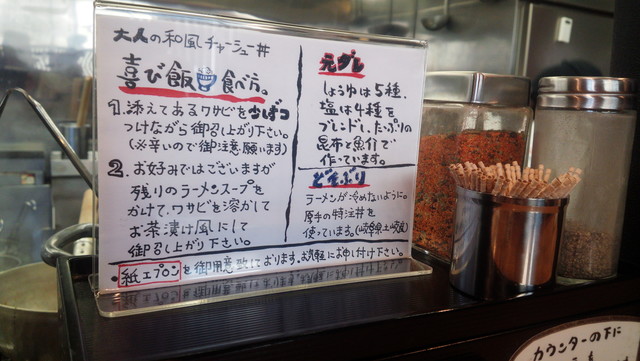 大人の和風チャーシュー丼
喜び飯 食べ方。
1.添えてあるワサビを少しずつ
つけながら御召し上がり下さい。
(※辛いので御注意願います)
2.お好みではございますが
残りのラーメンスープを
かけて、ワサビを溶かして
お茶漬け風にして
御召し上がり下さい。
元ダレ
しょうゆは5種、
塩は4種を
ブレンド、たっぷりの
昆布と魚介で
作っています。
どんぶり
ラーメンが冷めないように。
厚手の特注丼を
使っています。(岐阜県土岐産)
・紙エプロンを御用意致しております。お気軽にお申し付け下さい。
カウンターの下に